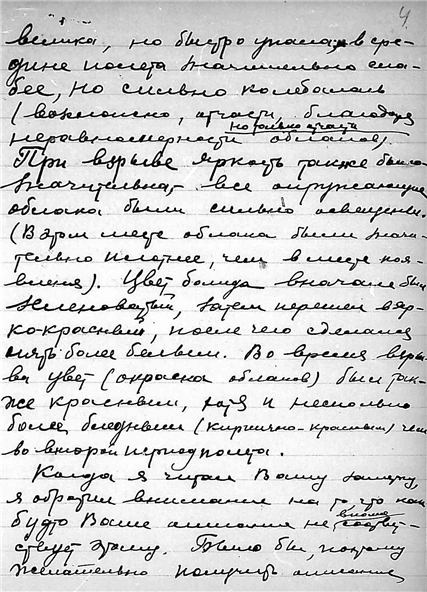 4
велика, но быстро упала, в сре-
дине полета значительно сла-
бее, но сильно колебалась
(возможно, отчасти, благодаря
но только отчасти
неравномерности облаков).
При взрыве яркость также была
значительна, все окружающие
облака были сильно освещены.
(В этом месте облака были значи-
тельно плотнее, чем в месте поя-
вления). Цвет болида вначале был
зеленоватый, затем перешел в яр-
ко-красный, после чего сделался
опять более белым. Во время взры-
ва цвет (окраска облаков) был так-
же красным, хотя и несколько
более бледным (кирпично-красным) чем
во второй период полета.
Когда я читал Вашу заметку,
я обратил внимание на то, что как
будто Ваше описание не
вполне
соответ-
ствует этому. Было бы, поэтому
желательно получить описание